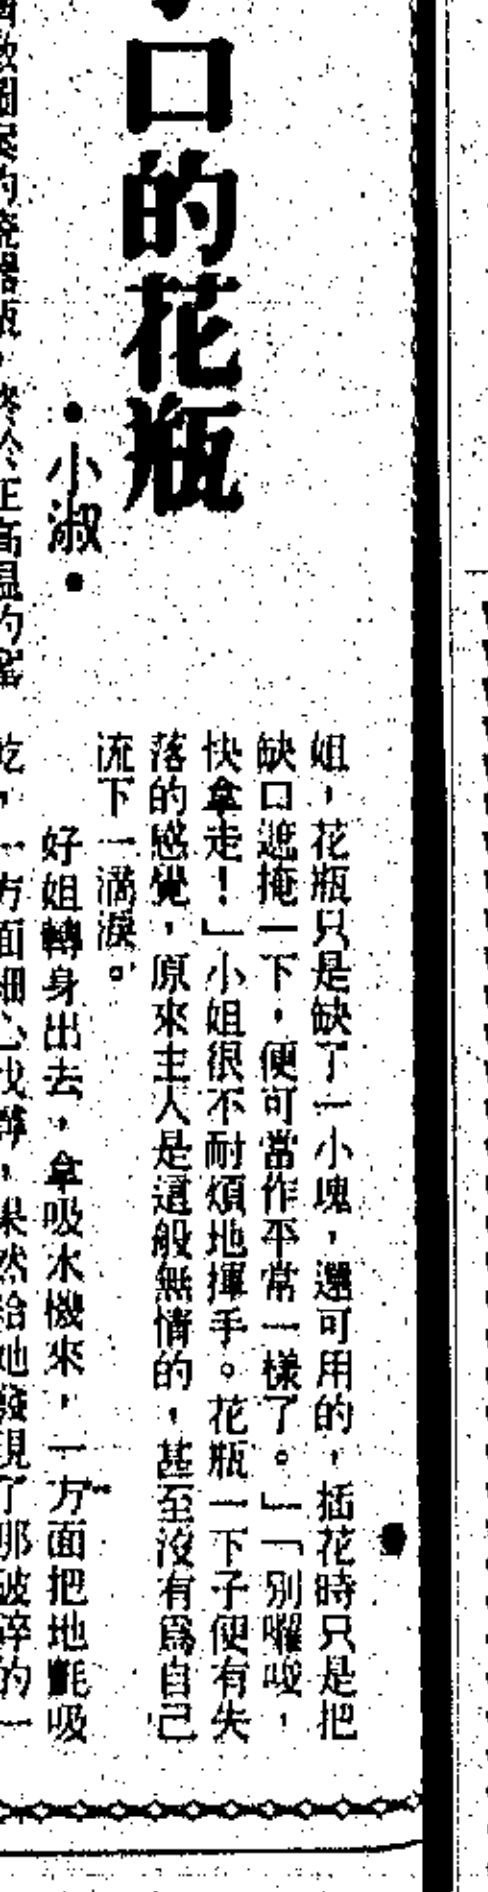 口的花瓶
•小淑•
姐，花瓶只是缺了一小塊，還可用的，插花時只是把
缺口遮掩一下，便可當作平常一樣了。」「別囉唆，
快拿走！」小姐很不耐煩地揮手。花瓶一下子便有失
落的感覺，原來主人是這般無情的，甚至沒有為自己
流下一滴淚。
好姐轉身出去，拿吸水機來，一方面把地氈吸
乾，一方面細心找尋，果然給她發現了那破碎的一